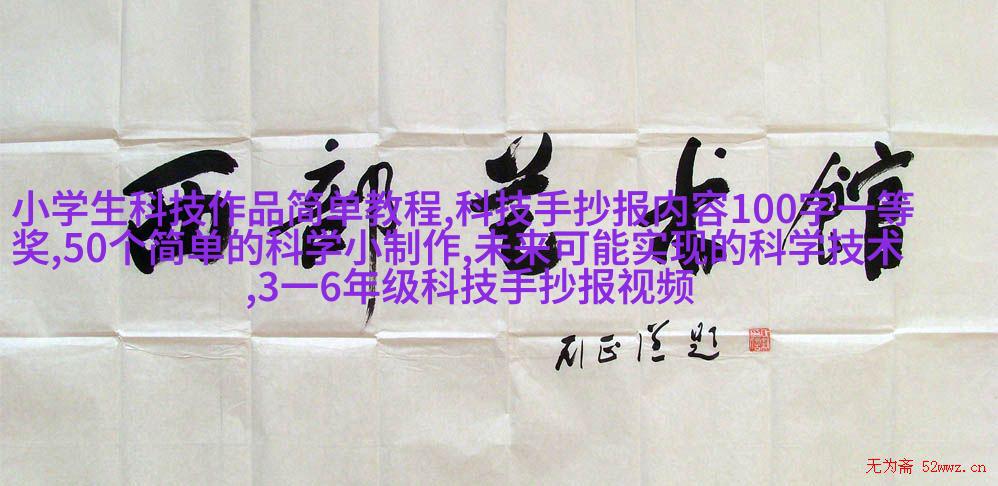 西部艺术馆
小学生科技作品简单教程,科技手抄报内容100字一等
奖,50个简单的科学小制作,未来可能实现的科学技术
,3一6年级科技手抄报视频
无为斋 52wwz.cn